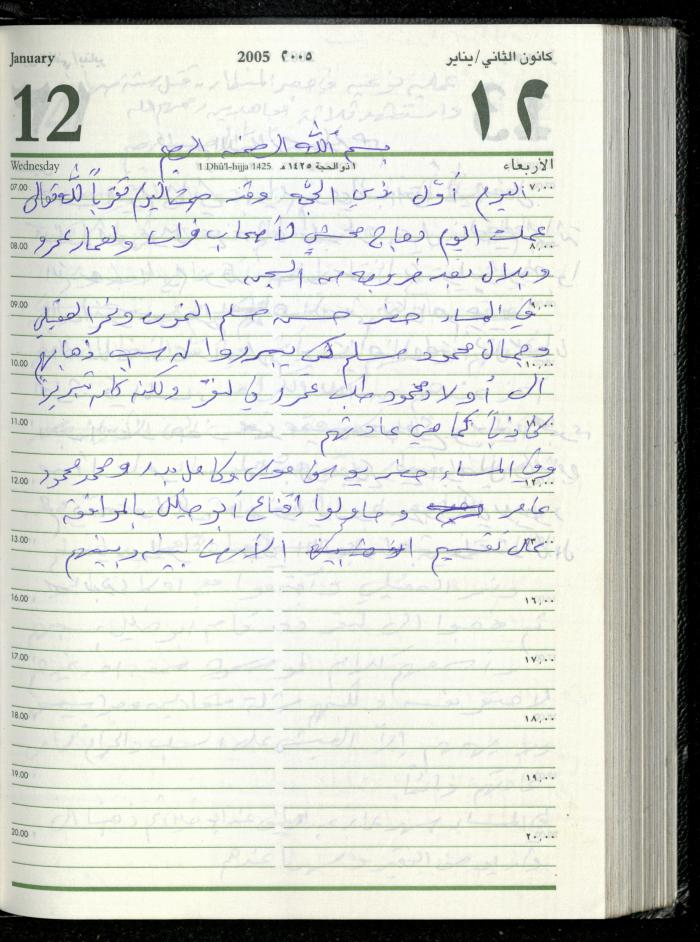 January 2005 ٢٠٠٥ كانون الثاني/يناير
12 ١٢
بسم الله الرحمن الرحيم
Wednesday 1 Dhû'l-hijja 1425 ١ ذو الحجة ١٤٢٥ هـ الأربعاء
07.00 ٧,٠٠
اليوم أوّل ذي الحجة وقد صمت اليوم تقرباً لله تعالى
عملت اليوم دجاج محشي لأصحاب فراس ولعمار عمرو
08.00 ٨,٠٠
وبلال بعد خروجه من السجن
09.00 ٩,٠٠
في المساء حضر حسن مسلم
وجمال محمود مسلم كي يبرروا له سبب ذهابهم
10.00 ١٠,٠٠
الى أولاد محمود ولكنه كان تبريراً
11.00 ١١,٠٠
كاذباً كما هي عادتهم
وفي المساء حضر يوسف موسى وكامل بدر ومحمد محمود
12.00 ١٢,٠٠
عامر وحاولوا إقناع أبو خليل بالموافقة
13.00 ١٣,٠٠
على تقسيم الأرض بينه وبينهم
16.00 ١٦,٠٠
17.00 ١٧,٠٠
18.00 ١٨,٠٠
19.00 ١٩,٠٠
20.00 ٢٠,٠٠